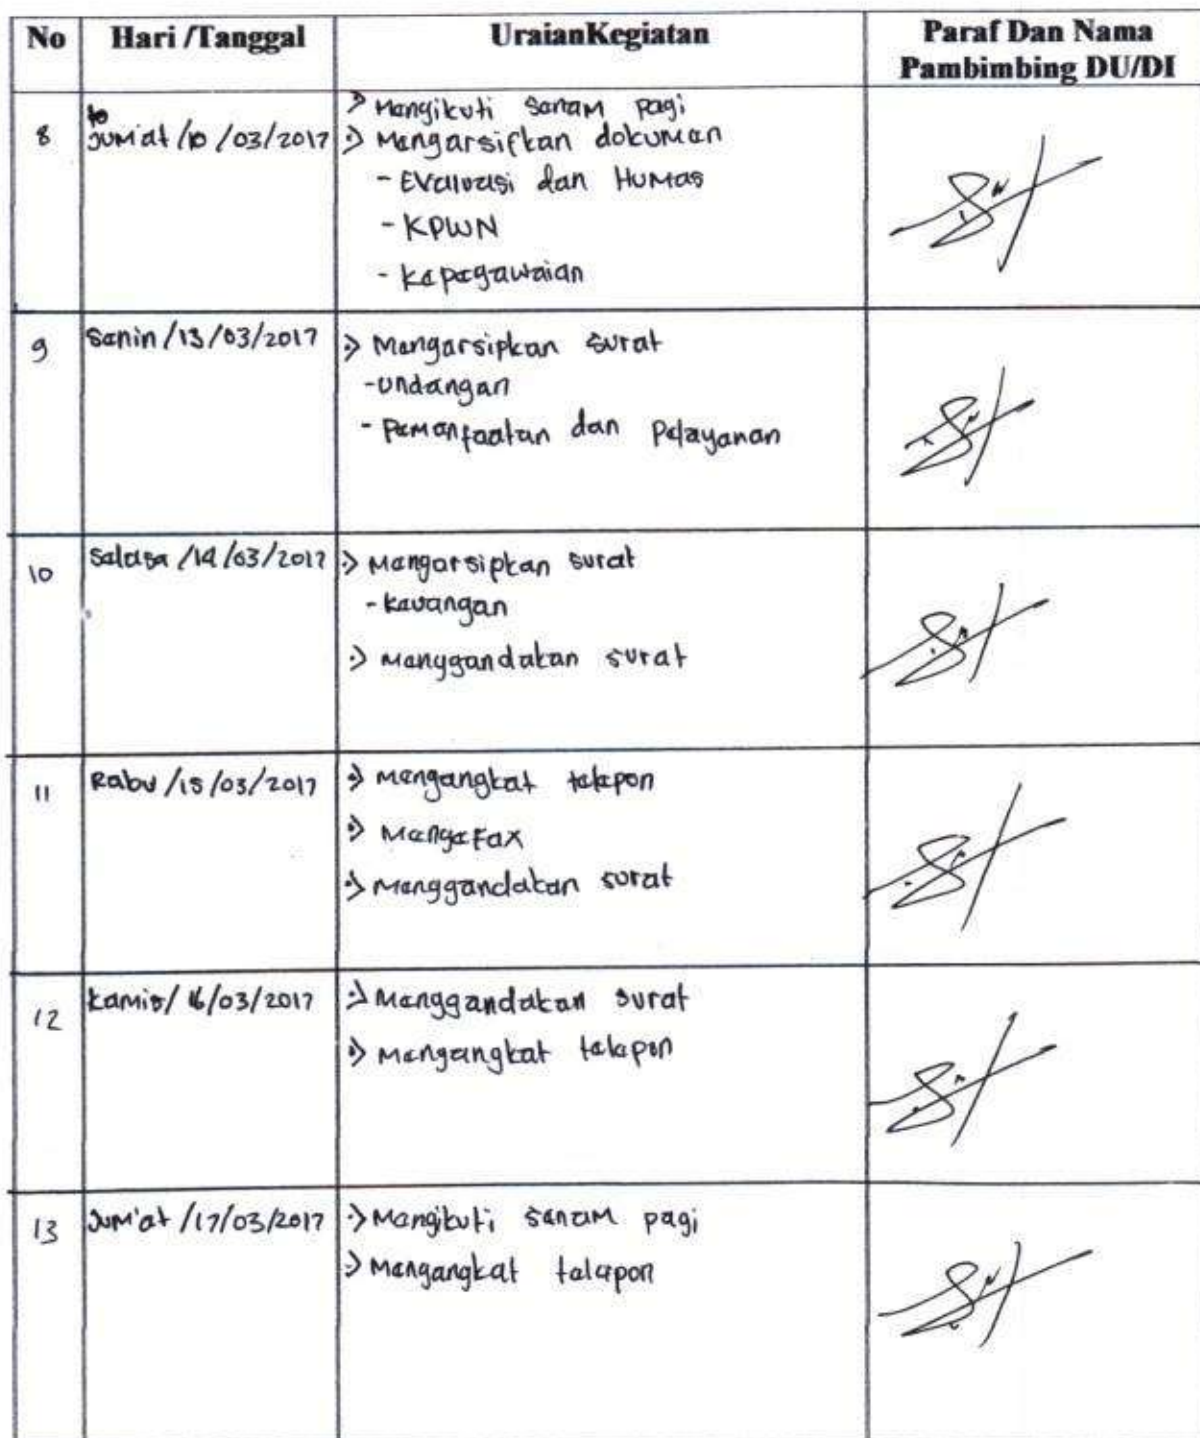 No Hari /Tanggal UraianKegiatan Paraf Dan Nama
Pambimbing DU/DI
8 Jum'at /10 /03/2017 Mengikuti senam pagi
Mengarsifkan dokumen
- Evaluasi dan Humas
- KPWN
- kepegawaian
9 Senin /13/03/2017 Mengarsipkan surat
- undangan
- Pemanfaatan dan Pelayanan
10 Selasa /14/03/2017 Mengarsipkan surat
- keuangan
Menggandakan surat
11 Rabu /15/03/2017 Mengangkat telepon
Mengefax
Menggandakan surat
12 Kamis/ 16/03/2017 Menggandakan surat
Mengangkat telepon
13 Jum'at /17/03/2017 Mengikuti senam pagi
Mengangkat telepon